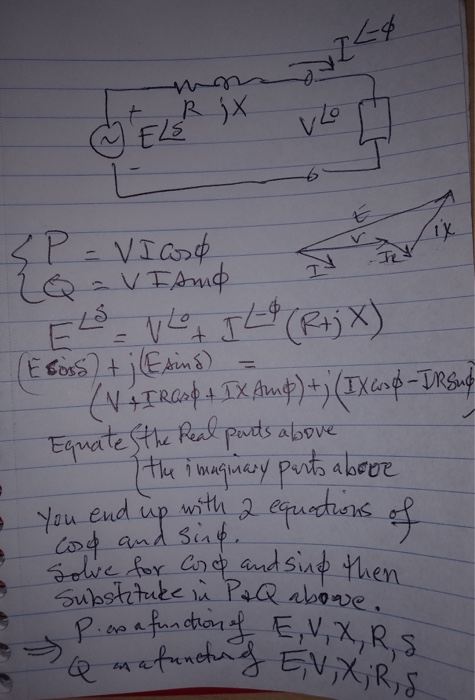 I∠-ϕ
+ R jX
E∠δ V∠0
-
E
V
I IR jX
{ P = VI cosϕ
Q = VI sinϕ
E∠δ = V∠0 + I∠-ϕ (R+jX)
(E cosδ) + j(E sinδ) =
(V + IR cosϕ + IX sinϕ) + j(IX cosϕ - IR sinϕ)
Equate { the Real parts above
the imaginary parts above
You end up with 2 equations of
cosϕ and sinϕ.
Solve for cosϕ and sinϕ then
Substitute in P&Q above.
⇒ P as a function of E, V, X, R, δ
Q as a function of E, V, X, R, δ